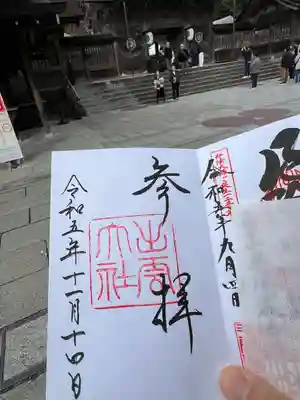 令和五年九月四日
参拝
出雲
大社
令和五年十一月十四日